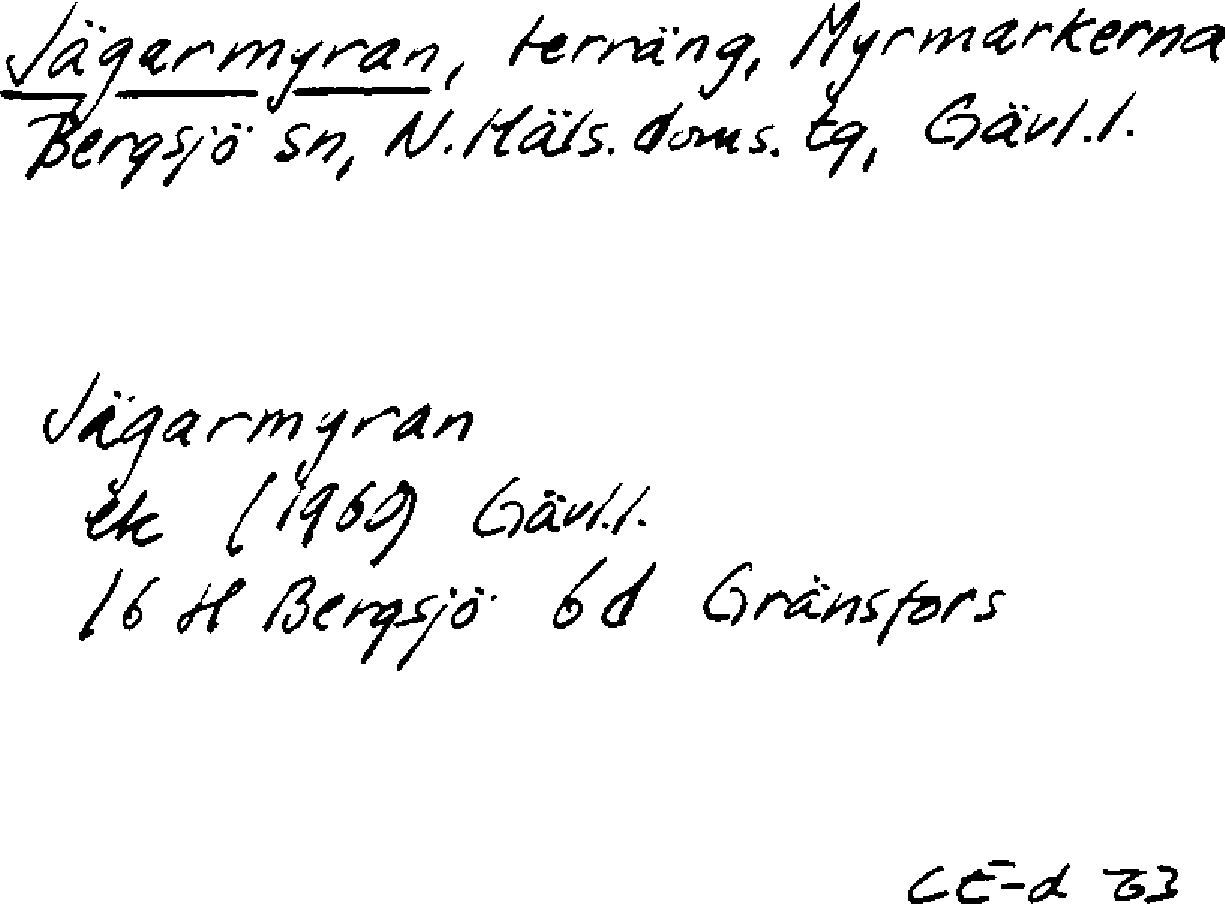 Jägarmyran, terräng, Myrmarkerna
Bergsjö sn, N. Häls. doms. tg, Gävl.l.
Jägarmyran
ek (1969) Gävl.l.
16 H Bergsjö 6d Gränsfors
CE-d 63